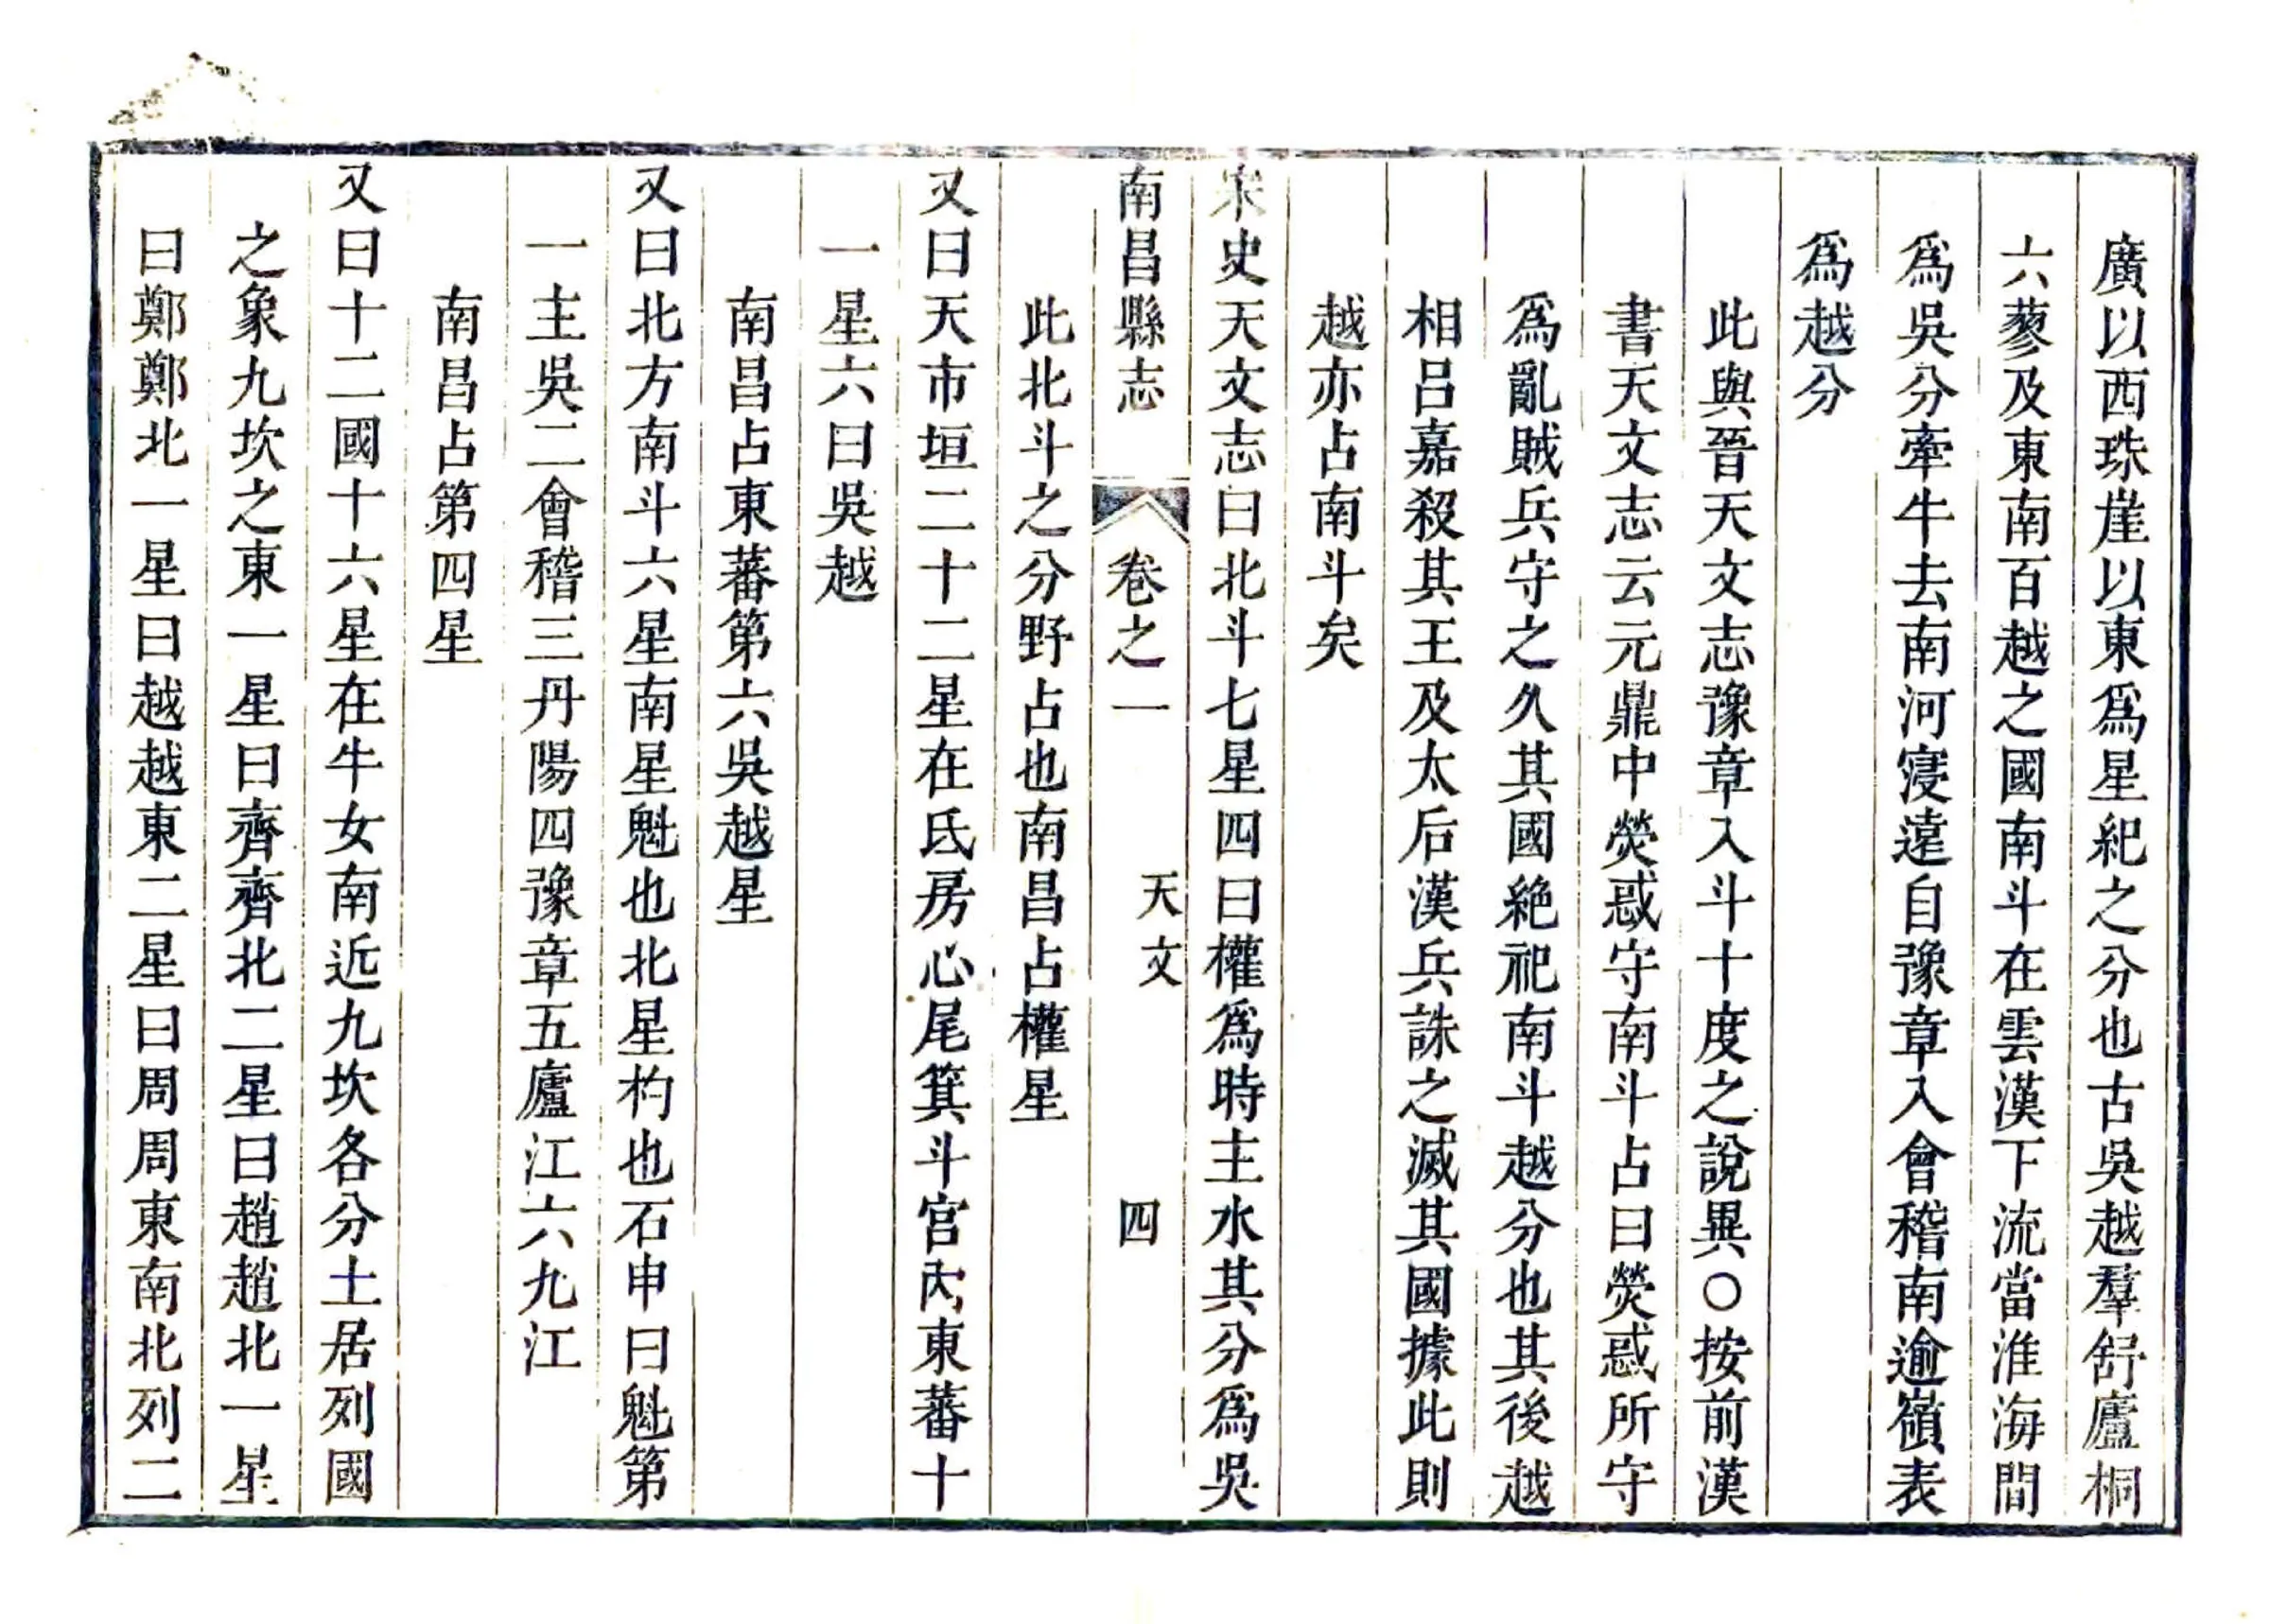 廣以西珠崖以東爲星紀之分也古吳越羣舒廬桐
六蓼及東南百越之國南斗在雲漢下流當淮海間
爲吳分牽牛去南河寖遠自豫章入會稽南逾嶺表
爲越分
此與晉天文志豫章入斗十度之說異〇按前漢
書天文志云元鼎中熒惑守南斗占曰熒惑所守
爲亂賊兵守之久其國絶祀南斗越分也其後越
相呂嘉殺其王及太后漢兵誅之滅其國據此則
越亦占南斗矣
宋史天文志曰北斗七星四曰權爲時主水其分爲吳
南昌縣志 卷之一 天文 四
此北斗之分野占也南昌占權星
又曰天市垣二十二星在氐房心尾箕斗宮內東蕃十
一星六曰吳越
南昌占東蕃第六吳越星
又曰北方南斗六星南星魁也北星杓也石申曰魁第
一主吳二會稽三丹陽四豫章五廬江六九江
南昌占第四星
又曰十二國十六星在牛女南近九坎各分土居列國
之象九坎之東一星曰齊齊北二星曰趙趙北一星
曰鄭鄭北一星曰越越東二星曰周周東南北列二